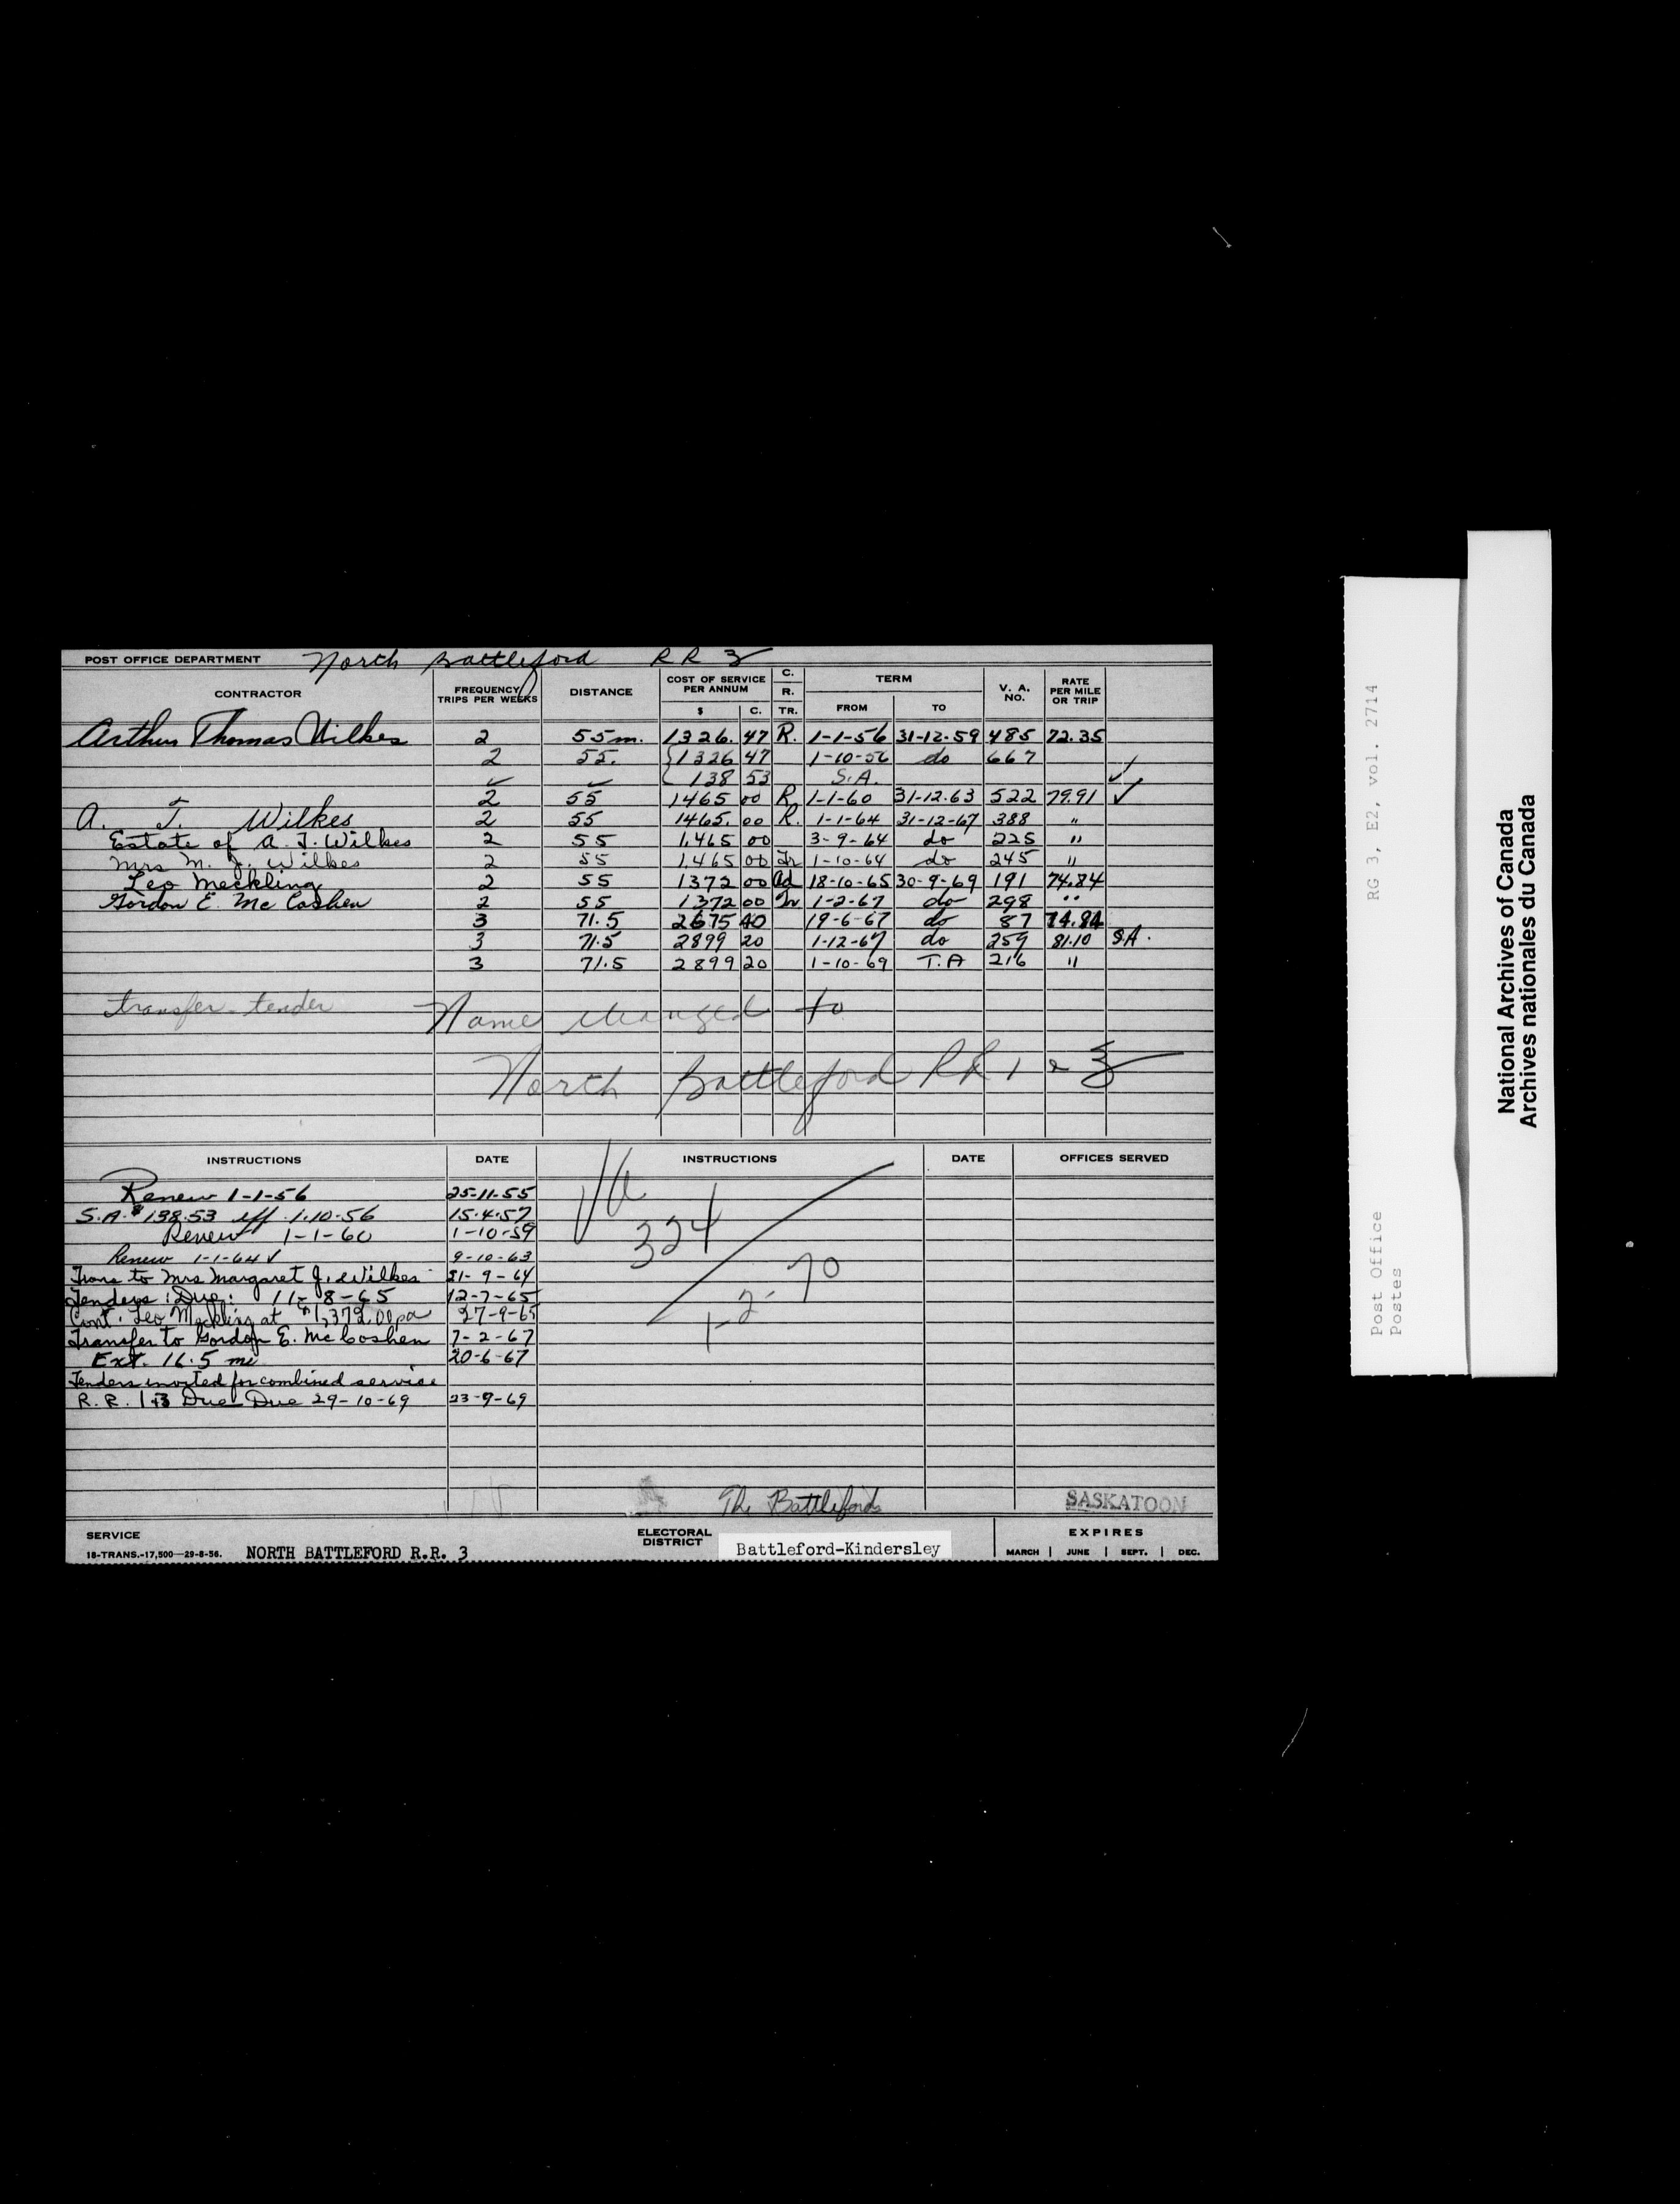 POST OFFICE DEPARTMENT North Battleford RR 3
CONTRACTOR FREQUENCY TRIPS PER WEEKS DISTANCE COST OF SERVICE PER ANNUM $ C. C. R. TR. TERM FROM TO V. A. NO. RATE PER MILE OR TRIP
Arthur Thomas Wilkes 2 55m. 1326. 47 R. 1-1-56 31-12-59 485 72.35
2 55. {1326 47 1-10-56 do 667
✓ ✓ { 138 53 S.A. ✓
2 55 1465 00 R 1-1-60 31-12-63 522 79.91 ✓
A. T. Wilkes 2 55 1465. 00 R. 1-1-64 31-12-67 388 "
Estate of A. T. Wilkes 2 55 1,465 00 3-9-64 do 225 "
Mrs M. J. Wilkes 2 55 1,465 00 Tr 1-10-64 do 245 "
Leo Meckling 2 55 1372 00 Ad 18-10-65 30-9-69 191 74.84
Gordon E. Mc Coshen 2 55 1372 00 Tr 1-2-67 do 298 "
3 71.5 2675 40 19-6-67 do 87 74.84
3 71.5 2899 20 1-12-67 do 259 81.10 S.A.
3 71.5 2899 20 1-10-69 T.A 216 "
transfer-tender Name changed to
North Battleford RR 1 & 3
INSTRUCTIONS DATE INSTRUCTIONS DATE OFFICES SERVED
Renew 1-1-56 25-11-55
S.A. $138.53 eff. 1.10-56 15.4.57
Renew 1-1-60 1-10-59
324
Renew 1-1-64 ✓ 9-10-63
Trans to Mrs Margaret J. Wilkes 21-9-64
Tenders: Due: 11-8-65 12-7-65
Cont. Leo Meckling at $1,372.00 pa 27-9-65
1-2-70
Transfer to Gordon E. Mc Coshen 7-2-67
Ext. 16.5 mi 20-6-67
Tenders invited for combined service
R.R. 1+3 Due Due 29-10-69 23-9-69
The Battlefords SASKATOON
SERVICE ELECTORAL DISTRICT EXPIRES
18-TRANS.-17,500-29-8-56. NORTH BATTLEFORD R.R. 3 Battleford-Kindersley MARCH | JUNE | SEPT. | DEC.
Post Office RG 3, E2, vol. 2714
Postes
National Archives of Canada
Archives nationales du Canada